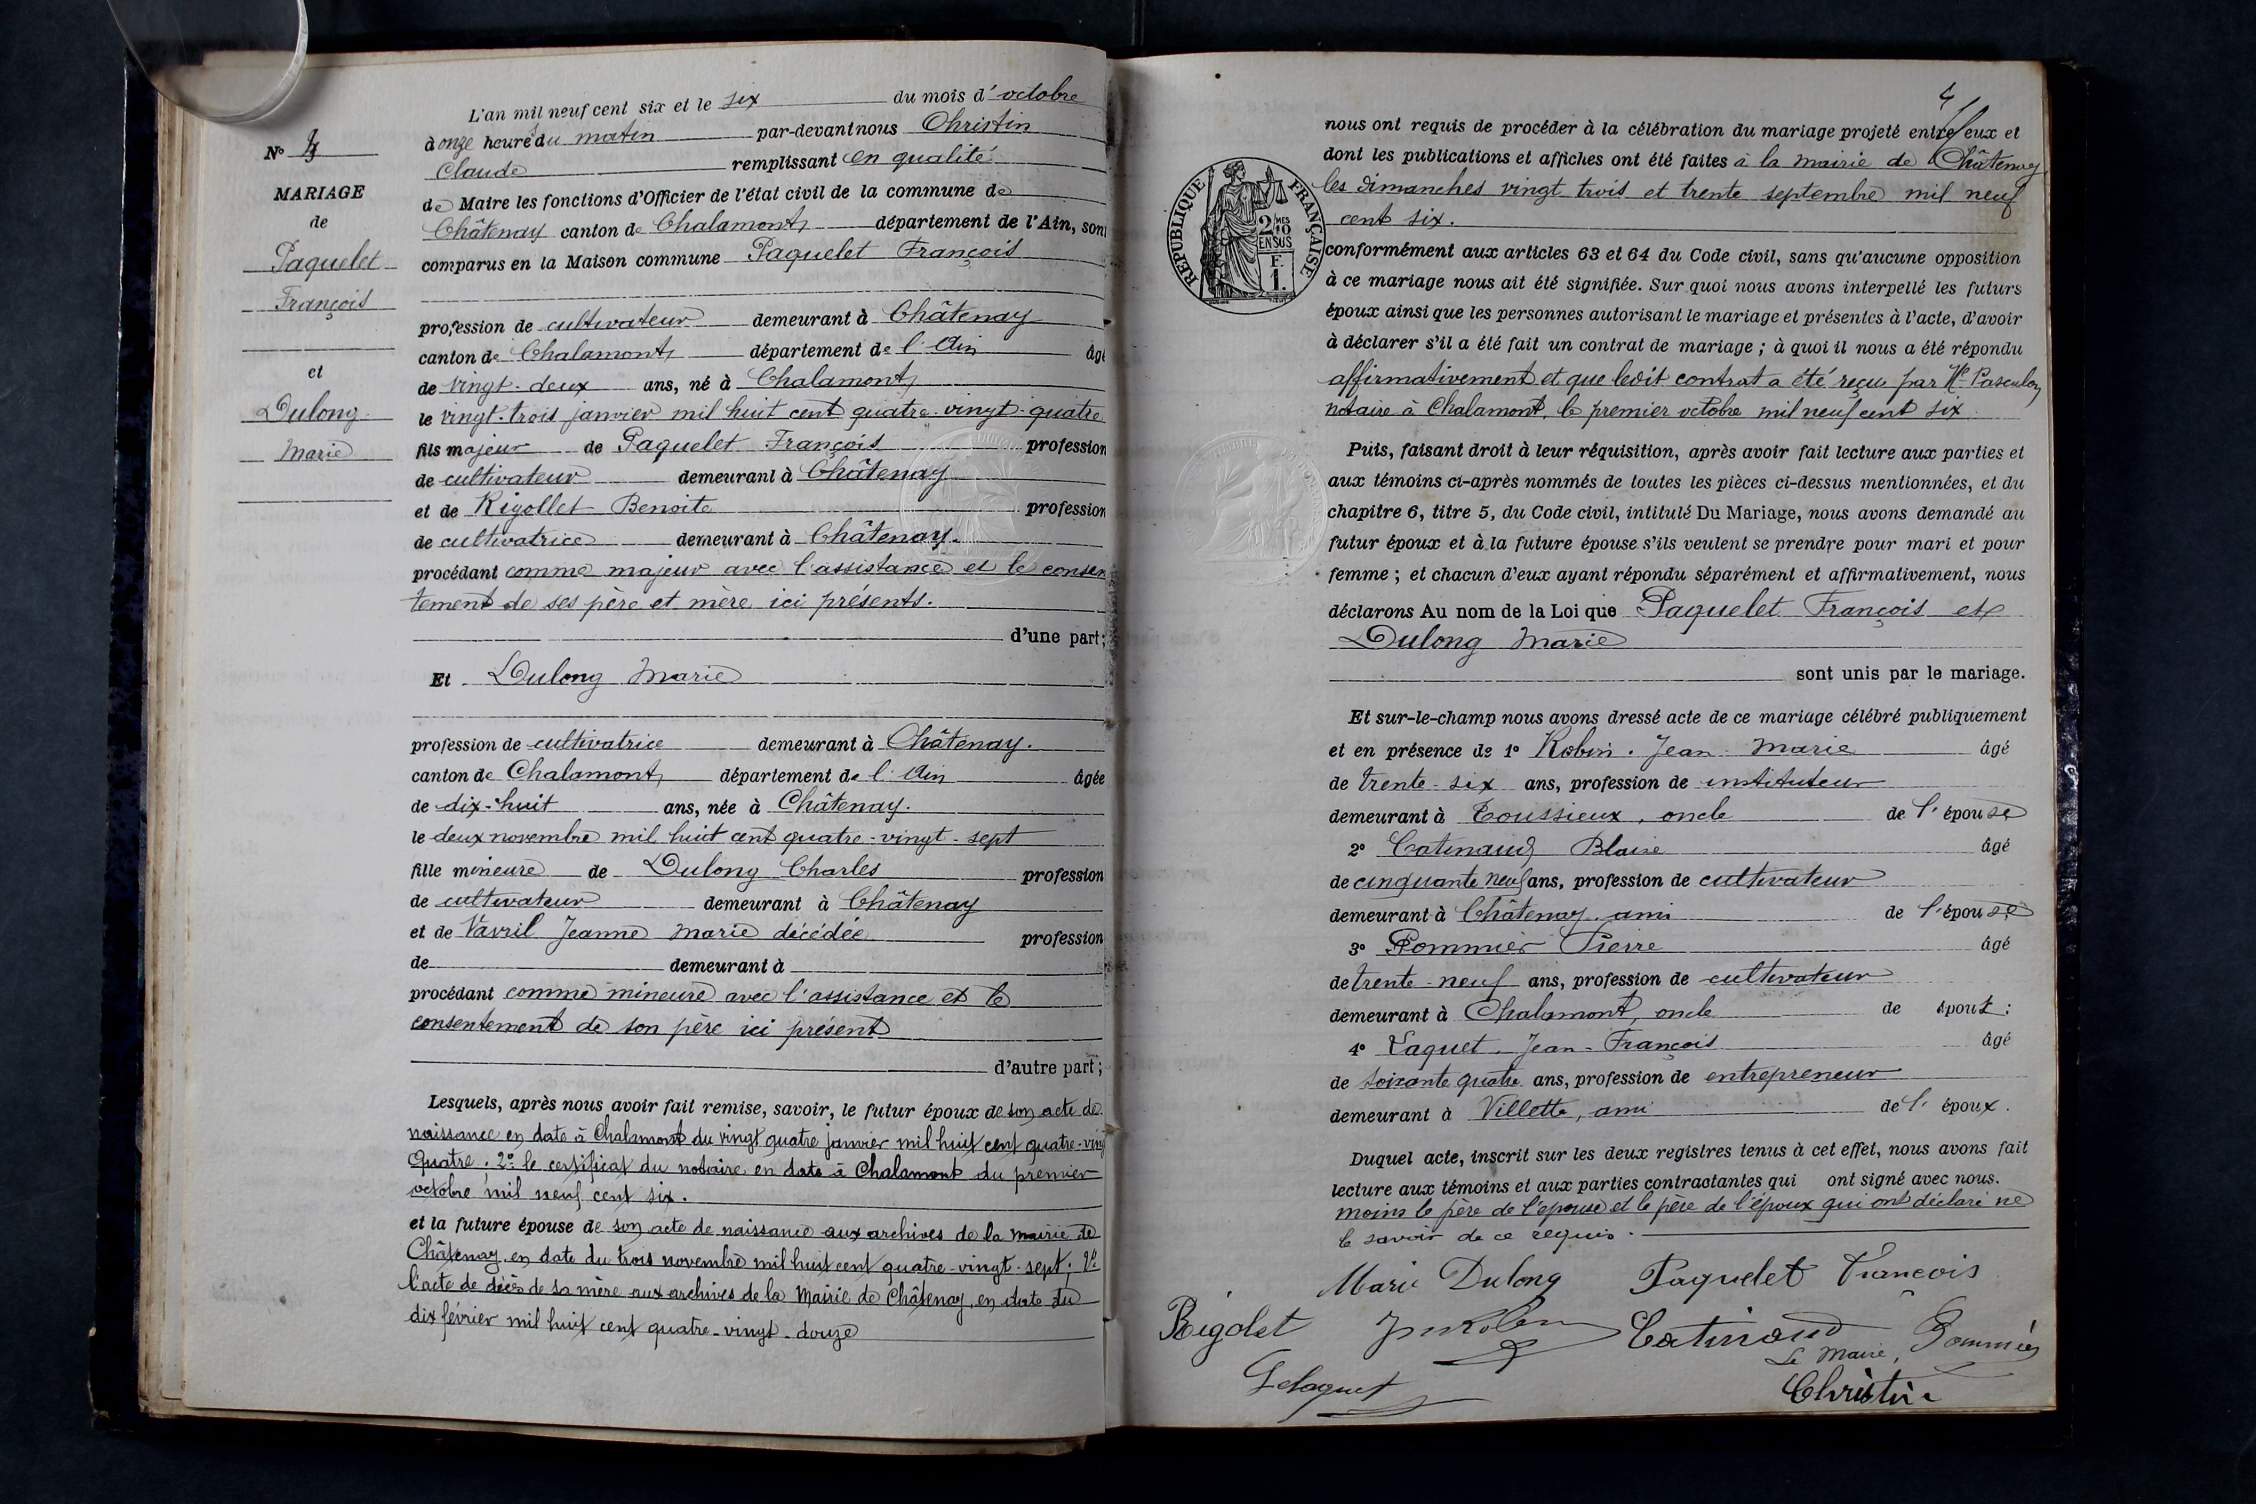 L'an mil neuf cent six et le six du mois d'octobre
à onze heures du matin par-devant nous Christin
Claude remplissant en qualité
de Maire les fonctions d'Officier de l'état civil de la commune de
Châtenay canton de Chalamont département de l'Ain, sont
comparus en la Maison commune Paquelet François
profession de cultivateur demeurant à Châtenay
canton de Chalamont département de l'Ain âgé
de vingt-deux ans, né à Chalamont
le vingt-trois janvier mil huit cent quatre-vingt-quatre
fils majeur de Paquelet François profession
de cultivateur demeurant à Châtenay
et de Rigollet Benoite profession
de cultivatrice demeurant à Châtenay.
procédant comme majeur avec l'assistance et le consen
tement de ses père et mère ici présents.
d'une part;
Et Dulong Marie
profession de cultivatrice demeurant à Châtenay.
canton de Chalamont département de l'Ain âgée
de dix-huit ans, née à Châtenay.
le deux novembre mil huit cent quatre-vingt-sept
fille mineure de Dulong Charles profession
de cultivateur demeurant à Châtenay
et de Vavril Jeanne Marie décédée profession
de demeurant à
procédant comme mineure avec l'assistance et le
consentement de son père ici présent
d'autre part;
Lesquels, après nous avoir fait remise, savoir, le futur époux de son acte de
naissance en date à Chalamont du vingt quatre janvier mil huit cent quatre-vingt
quatre; 2° le certificat du notaire en date à Chalamont du premier
octobre mil neuf cent six.
et la future épouse de son acte de naissance aux archives de la mairie de
Châtenay en date du trois novembre mil huit cent quatre-vingt-sept; 2°
l'acte de décès de sa mère aux archives de la Mairie de Châtenay, en date du
dix février mil huit cent quatre-vingt-douze
N° 4
MARIAGE
de
Paquelet
François
et
Dulong
Marie
4
nous ont requis de procéder à la célébration du mariage projeté entre eux et
dont les publications et affiches ont été faites à la mairie de Châtenay
les dimanches vingt trois et trente septembre mil neuf
cent six.
RÉPUBLIQUE FRANÇAISE
2/10 MES
EN SUS
F.
1.
conformément aux articles 63 et 64 du Code civil, sans qu'aucune opposition
à ce mariage nous ait été signifiée. Sur quoi nous avons interpellé les futurs
époux ainsi que les personnes autorisant le mariage et présentes à l'acte, d'avoir
à déclarer s'il a été fait un contrat de mariage; à quoi il nous a été répondu
affirmativement et que ledit contrat a été reçu par Me Pasculon
notaire à Chalamont, le premier octobre mil neuf cent six
Puis, faisant droit à leur réquisition, après avoir fait lecture aux parties et
aux témoins ci-après nommés de toutes les pièces ci-dessus mentionnées, et du
chapitre 6, titre 5, du Code civil, intitulé Du Mariage, nous avons demandé au
futur époux et à la future épouse s'ils veulent se prendre pour mari et pour
femme; et chacun d'eux ayant répondu séparément et affirmativement, nous
déclarons Au nom de la Loi que Paquelet François et
Dulong Marie
sont unis par le mariage.
Et sur-le-champ nous avons dressé acte de ce mariage célébré publiquement
et en présence de 1° Robin Jean Marie âgé
de trente-six ans, profession de instituteur
demeurant à Toussieux, oncle de l'épouse
2° Catinaud Blaise âgé
de cinquante neuf ans, profession de cultivateur
demeurant à Châtenay ami de l'épouse
3° Pommier Pierre âgé
de trente-neuf ans, profession de cultivateur
demeurant à Chalamont, oncle de époux;
4° Laquet Jean-François âgé
de soixante quatre ans, profession de entrepreneur
demeurant à Villette, ami de l'époux.
Duquel acte, inscrit sur les deux registres tenus à cet effet, nous avons fait
lecture aux témoins et aux parties contractantes qui ont signé avec nous.
moins le père de l'épouse et le père de l'époux qui ont déclaré ne
le savoir de ce requis.
Marie Dulong Paquelet Francois
Rigolet Catinaud Pommier
Le Maire,
Christin